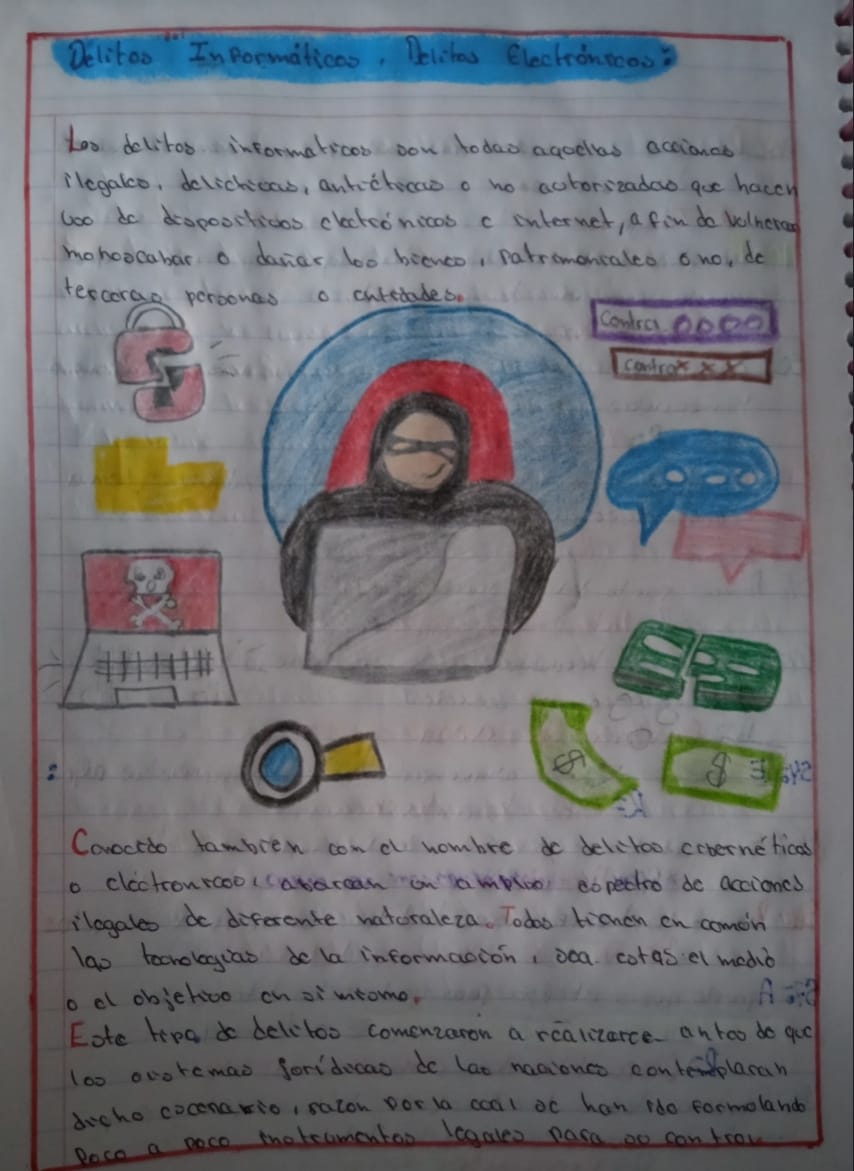 Delitos Informáticos, Delitos Electrónicos:
Los delitos informaticos son todas aquellas acciones
ilegales, delictivas, antiéticas o no autorizadas que hacen
uso de dispositivos electrónicos e internet, a fin de vulnerar
menoscabar o dañar los bienes, patrimoniales o no, de
terceras personas o entidades.
Contra
Contra x x x
$
$
Conocido tambien con el nombre de delitos cibernéticos
o electronicos, abarcan un amplio espectro de acciones
ilegales de diferente naturaleza. Todos tienen en común
las tecnologías de la información, sea estas el medio
o el objetivo en si mismo.
Este tipo de delitos comenzaron a realizarce antes de que
los sistemas juridicos de las naciones contemplaran
dicho escenario, razon por la cual se han ido formolando
poco a poco instrumentos legales para so control